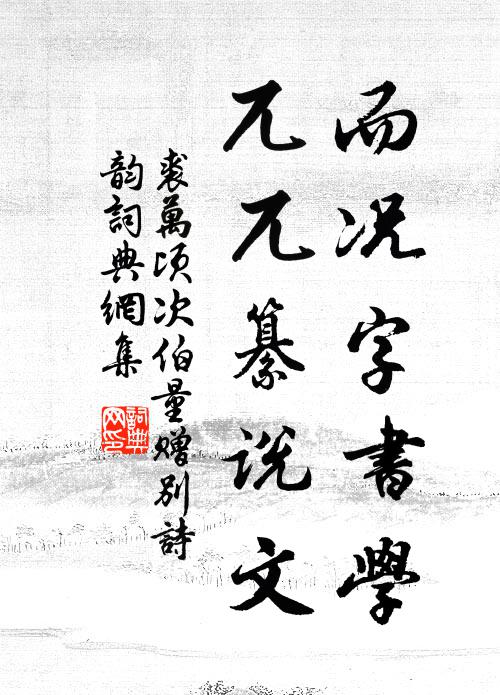 而況字書學
兀兀纂說文
裘萬頃次伯量贈別詩
韵詞典網集
詞典網印